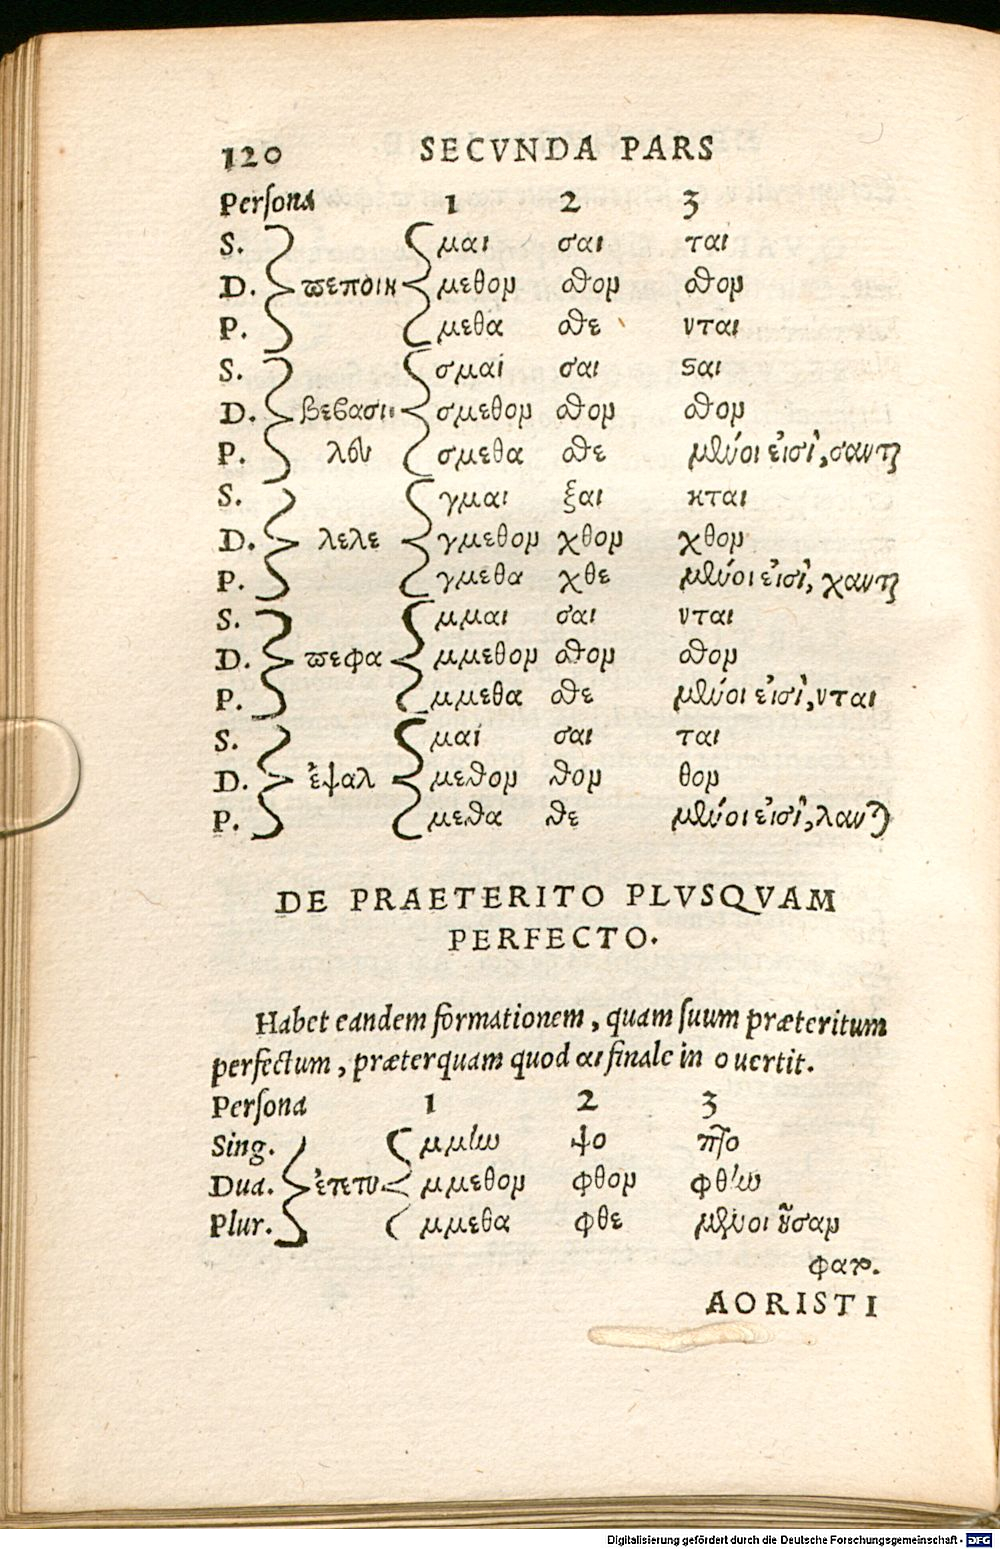 120 SECVNDA PARS
Persona 1 2 3
S. μαι σαι ται
D. ϖεποιη μεθον σθον σθον
P. μεθα σθε νται
S. σμαι σαι ϛαι
D. βεβασι σμεθον σθον σθον
P. λευ σμεθα σθε μένοι εἰσὶ, σανται
S. γμαι ξαι κται
D. λελε γμεθον χθον χθον
P. γμεθα χθε μένοι εἰσὶ, χανται
S. μμαι σαι νται
D. ϖεφα μμεθον σθον σθον
P. μμεθα σθε μένοι εἰσὶ, νται
S. μαι σαι ται
D. ἐψαλ μεθον θον θον
P. μεθα θε μένοι εἰσὶ, λανται
DE PRAETERITO PLVSQVAM
PERFECTO.
Habet eandem formationem, quam ſuum præteritum
perfectum, præterquam quod αι finale in ο uertit.
Persona 1 2 3
Sing. μμην ψο πτο
Dua. ἐτετυ μμεθον φθον φθην
Plur. μμεθα φθε μένοι ἦσαν
φατο.
AORISTI
Digitalisierung gefördert durch die Deutsche Forschungsgemeinschaft - DFG